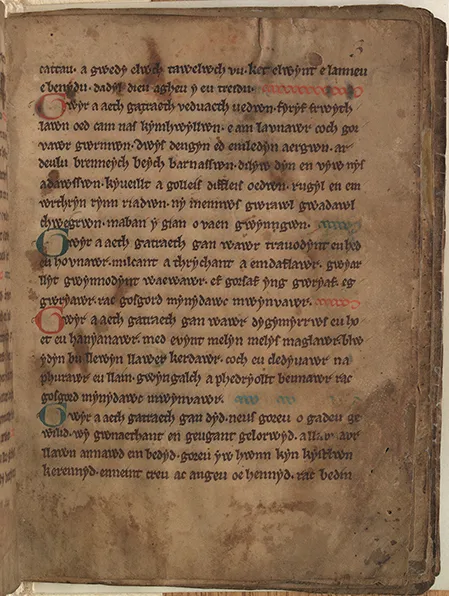 cattau. a gwedy elwch tawelwch vu. ket elwynt e lanneu
e benydu. dadyl dieu agheu y eu treidu.
Gwyr a aeth gatraeth veduaeth uedwn. fyryf frwyth
lawn oed cam nas kymhwyllwn. e am lavnawr coch gor
vawr gwrmwn. dwys dengyn ed emledyn aergwn. ar
deulu brenneych beych barnasswn. dilyw dyn en vyw nys
adawsswn. kyueillt a golleis diffleis oedwn. rugyl en em
wrthryn rynn riadwn. ny mennws gwrawl gwadawl
chwegrwn. maban y gian o vaen gwynngwn.
Gwyr a aeth gatraeth gan wawr trauodynt eu hed
eu hovnawr. milcant a thrychant a emdaflawr. gwyar
llyt gwynnodynt waewawr. ef gorsaf yng gwryaf. eg
gwryawr. rac gosgord mynydawc mwynvawr.
Gwyr a aeth gatraeth gan wawr dygymyrrws eu ho
et eu hanyanawr. med evynt melyn melys maglawr. blw
ydyn bu llewyn llawer kerdawr. coch eu cledyuawr na
phurawr eu llain. gwyngalch a phedryollt bennawr rac
gosgord mynydawc mwynvawr.
Gwyr a aeth gatraeth gan dyd. neus goreu o gadeu ge
wilid. wy gwnaethant en geugant gelorwyd. a llavnawr
llawn annawd em bedyd. goreu yw hwnn kyn kystlwn
kerennyd. enneint creu ac angeu oe hennyd. rac bedin